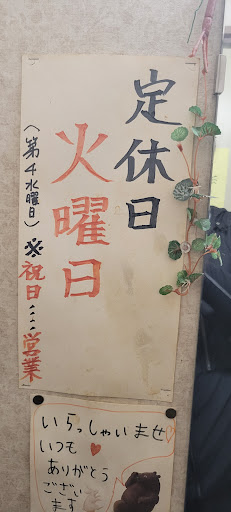 定休日
火曜日
(第4水曜日)※祝日……営業
いらっしゃいませ
いつも
ありがとう
ござい
ます